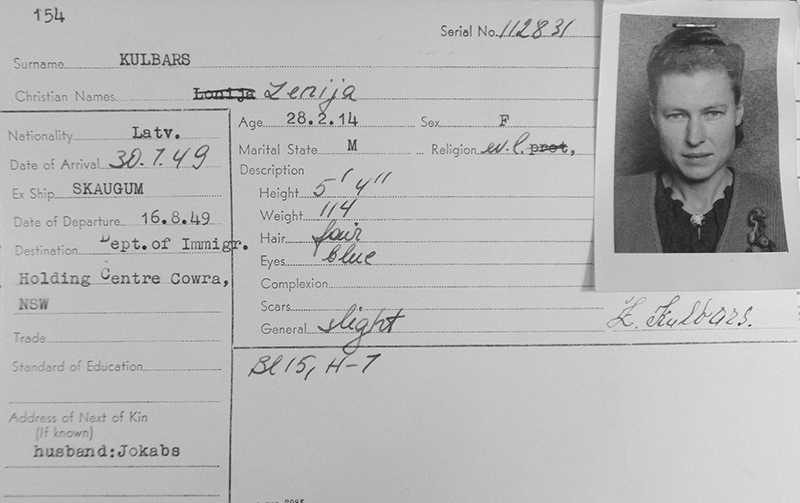 154
Serial No. 112831
Surname KULBARS
Christian Names Lonija Zenija
Nationality Latv.
Date of Arrival 30.7.49
Ex Ship SKAUGUM
Date of Departure 16.8.49
Destination Dept. of Immigr.
Holding Centre Cowra,
NSW
Trade
Standard of Education
Address of Next of Kin
(if known)
husband: Jokabs
Age 28.2.14 Sex F
Marital State M Religion ev.l. prot,
Description
Height 5' 4"
Weight 114
Hair fair
Eyes blue
Complexion
Scars
General slight
Z. Kulbars.
Bl 15, H-7